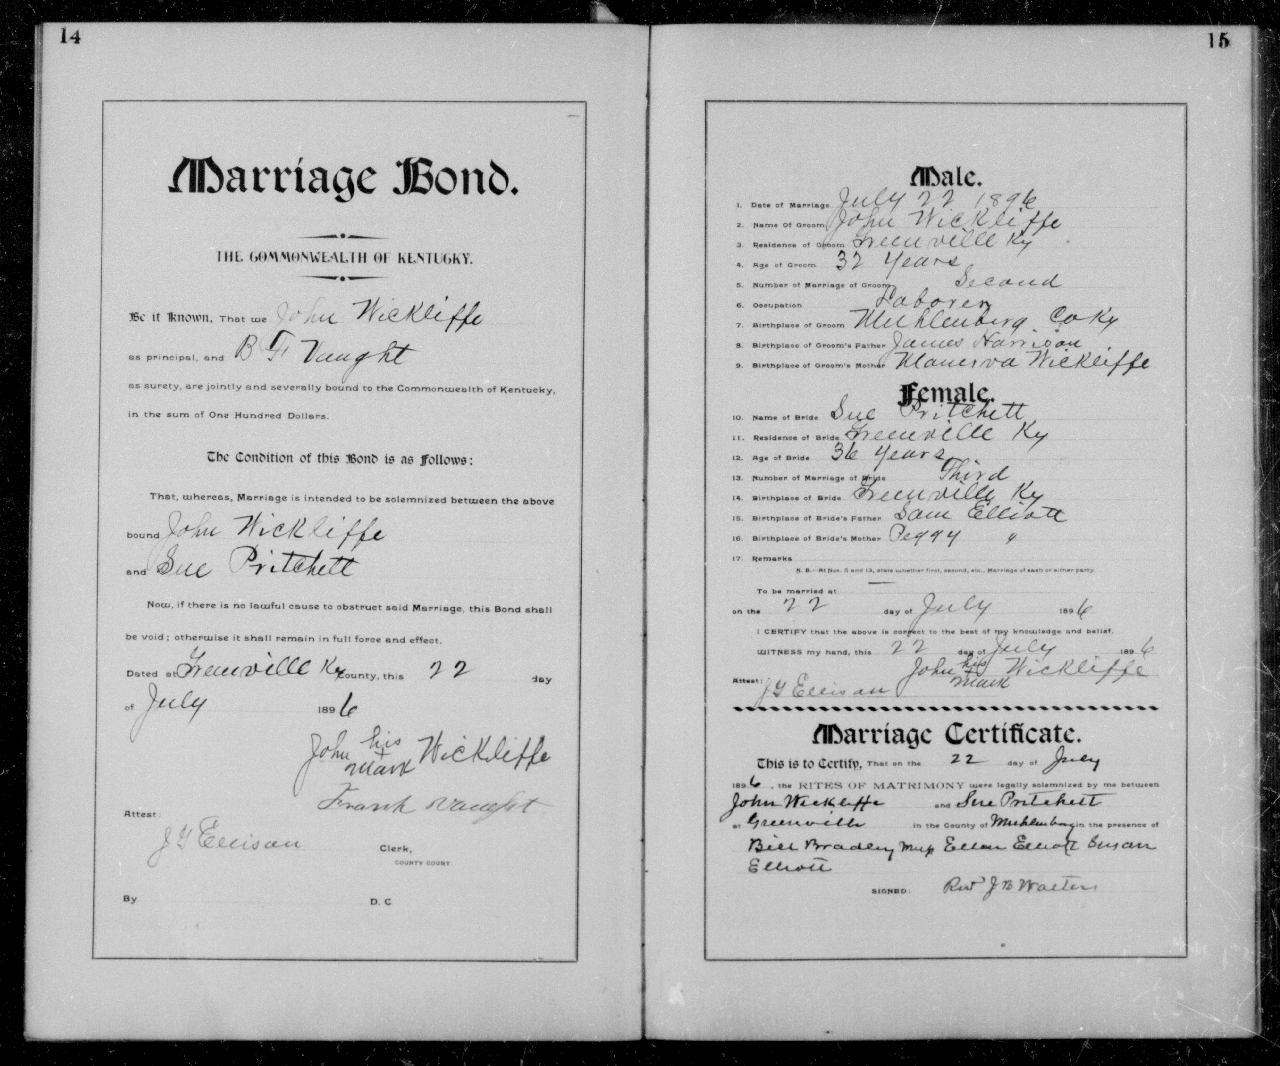 14
Marriage Bond.
THE COMMONWEALTH OF KENTUCKY.
Be it Known, That we John Wickliffe
as principal, and B F Vaught
as surety, are jointly and severally bound to the Commonwealth of Kentucky,
in the sum of One Hundred Dollars.
The Condition of this Bond is as Follows:
That, whereas, Marriage is intended to be solemnized between the above
bound John Wickliffe
and Sue Pritchett
Now, if there is no lawful cause to obstruct said Marriage, this Bond shall
be void; otherwise it shall remain in full force and effect.
Dated at Greenville Ky County, this 22 day
of July 1896
John his Wickliffe
mark
Frank Vaught
Attest:
J G Ellison Clerk,
COUNTY COURT.
By D. C.
15
Male.
1. Date of Marriage July 22 1896
2. Name Of Groom John Wickliffe
3. Residence of Groom Greenville Ky
4. Age of Groom 32 Years
5. Number of Marriage of Groom Second
6. Occupation Laborer
7. Birthplace of Groom Muhlenberg Co Ky
8. Birthplace of Groom's Father James Harrison
9. Birthplace of Groom's Mother Manerva Wickliffe
Female.
10. Name of Bride Sue Pritchett
11. Residence of Bride Greenville Ky
12. Age of Bride 36 Years
13. Number of Marriage of Bride Third
14. Birthplace of Bride Greenville Ky
15. Birthplace of Bride's Father Sam Elliott
16. Birthplace of Bride's Mother Peggy "
17. Remarks
N. B.—At Nos. 5 and 13, state whether first, second, etc., Marriage of each or either party.
To be married at
on the 22 day of July 1896
I CERTIFY that the above is correct to the best of my knowledge and belief.
WITNESS my hand, this 22 day of July 1896
John his Wickliffe
mark
Attest: J G Ellison
Marriage Certificate.
This is to Certify, That on the 22 day of July
1896, the RITES OF MATRIMONY were legally solemnized by me between
John Wickliffe and Sue Pritchett
at Greenville in the County of Muhlenberg in the presence of
Bill Bradley Ellen Elliott Susan
Elliott
SIGNED: Rev J B Walters